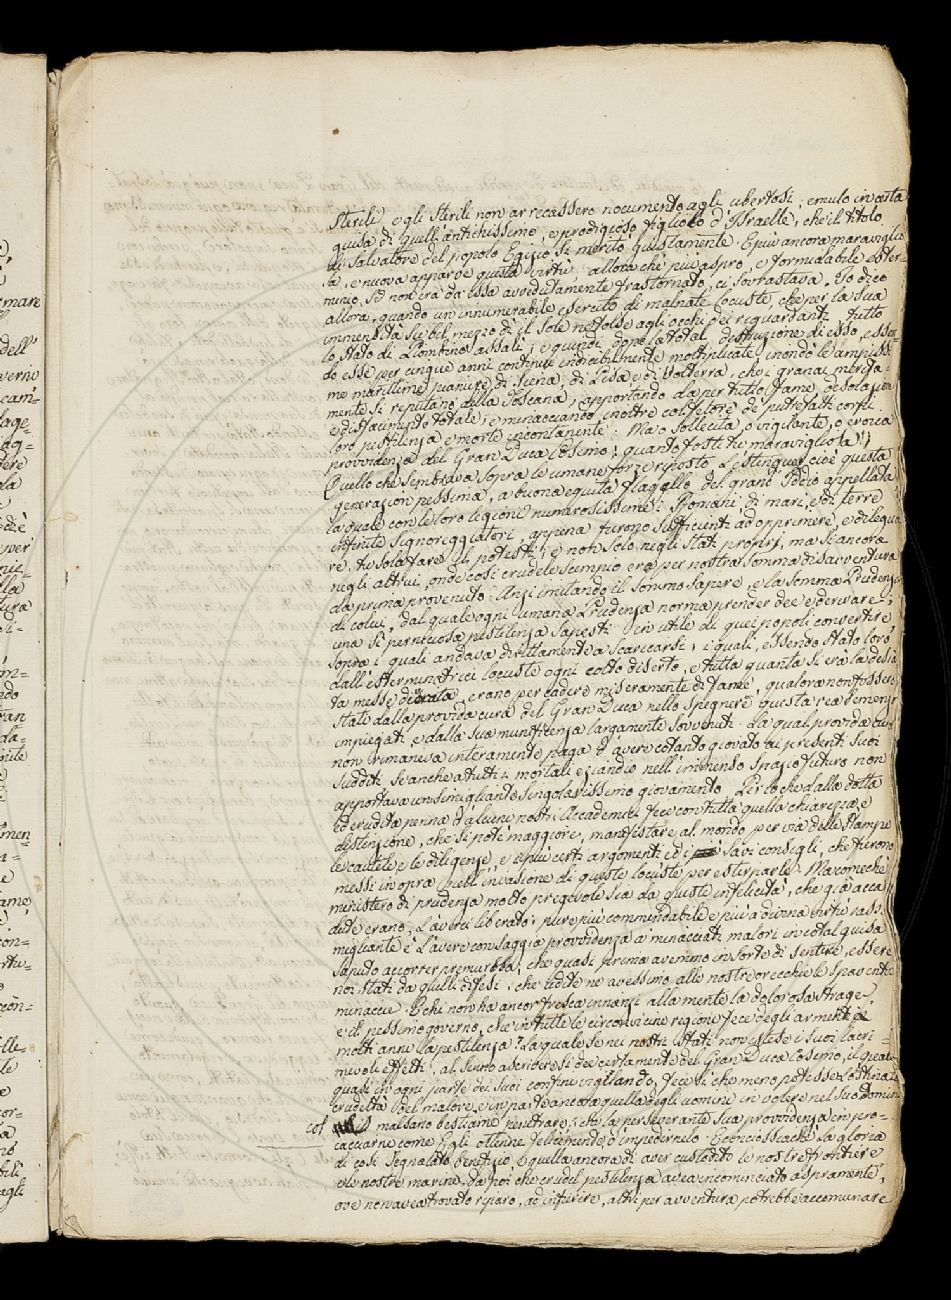 sterili e gli sterili non arrecassero nocumento agli ubertosi, emulo in certa
guisa di quell'antichissimo, e prodigioso figliolo d'Israelle, che il titolo
di Salvatore del popolo Egizio si meritò giustamente. E più ancora maraviglio
sa, e nuova apparve questa virtù, allora che più aspro, e formidabile ester-
minio, se non era da essa avvedutamente frastornato, ci sovrastava. Io dico
allora, quando un innumerabile esercito di malnate locuste, che per la sua
immensità sul bel mezzo dì il Sole ne tolse agli occhi dei riguardanti, tutto
lo stato di Piombino assalì; e quindi dopo la total destruzione di esso, essen
do esse per cinque anni continui indicibilmente moltiplicate, inondò le ampissi
me marittime pianure di Siena, di Pisa e di Volterra, che i granai merita-
mente si reputano della Toscana, apportando da per tutto fame, desolazione
e disfacimento totale; e minacciando inoltre col fetore de' putrefatti corpi
loro pestilenza e morte incontanente. Ma o sollecita, o vigilante, o eroica
provvidenza del Gran Duca Cosimo, quanto fosti tu maravigliosa!
Quello che sembrava sopra le umane forze riposto l'estinguer, cioè questa
generazion pessima, a buona equità flagello del grand'Iddio appellata
la quale con le loro legioni numerosissime i Romani, di mari, e di terre
infinite signoreggiatori, appena furono sufficienti ad opprimere, e dilegua
re, tu sola fare il potesti; e non solo negli stati propri, ma sì ancora
negli altrui, onde così crudele scempio era per nostra somma disavventura
da prima provenuto. Anzi imitando il sommo sapere, e la somma Prudenza
di colui, dal quale ogni umana Prudenza norma prender dee e derivare;
una sì perniciosa pestilenza sapesti in utile di quei popoli convertire
sopra i quali andava dirittamente a scaricarsi, i quali, essendo stato loro
dall'esterminatrici locuste ogni colto diserto, e tutta quanta si era la desia
ta messe divorata, erano per cadere miseramente di fame, qualora non fossero
stati dalla provida cura del Gran Duca nello spegnere questa rea semenza
impiegati, e dalla sua munificenza largamente sovvenuti. La qual provida cura
non rimaneva interamente paga d'avere cotanto giovato ai presenti suoi
sudditi se anche a tutti i mortali eziandio nell'immenso spazio futuro non
apportava un simigliante singolarissimo giovamento. Per lo che dalla dotta
ed erudita penna d'alcuno nostri Accademici fece con tutta quella chiarezza, e
distinzione, che si potè maggiore, manifestare al mondo per via delle stampe
le cautele, e le diligenze, e i più certi argomenti ed i savi consigli, che furono
messi in opra nell'invasione di queste locuste per esterparle. Ma come che
ministero di prudenza molto pregevole sia da queste infelicità, che già acca
dute erano, l'averci liberato; pure più commendabile e più a divina virtù rass.
migliante è l'avere con saggia provvidenza a' minacciati malori in cotal guisa
saputo accorrer premurosa, che quasi prima avemmo in sorte di sentire, essere
noi stati da quelli difesi, che udite ne avessimo alle nostre orecchie le spaventose
minaccie. E chi non ha ancor fresca innanzi alla mente la dolorosa strage,
e il pessimo governo, che in tutte le circonvicine regioni fece degli armenti
molti anni la pestilenza? La quale se nei nostri stati non istese i suoi lacri-
mevoli effetti, al senno ascriversi dee certamente del Gran Duca Cosimo, il quale
quasi in ogni parte dei suoi confini vigilando, fece sì che meno potesse l'ostinata
crudeltà del malore, e in parte ancora quella degli uomini in volere nel suo Domin
col malsano bestiame penetrare; che la perseverante sua provvidenza in pro-
cacciarne come egli ottenne felicemente d'impedirnelo. E conciossiachè la gloria
di così segnalato benefizio e quella ancora di aver custodito le nostre frontiere
e le nostre marine, da poi che crudel pestilenza avea incominciato aspramente,
ove non avea trovato riparo, ad infierire, altri per avventura potrebbe accomunare